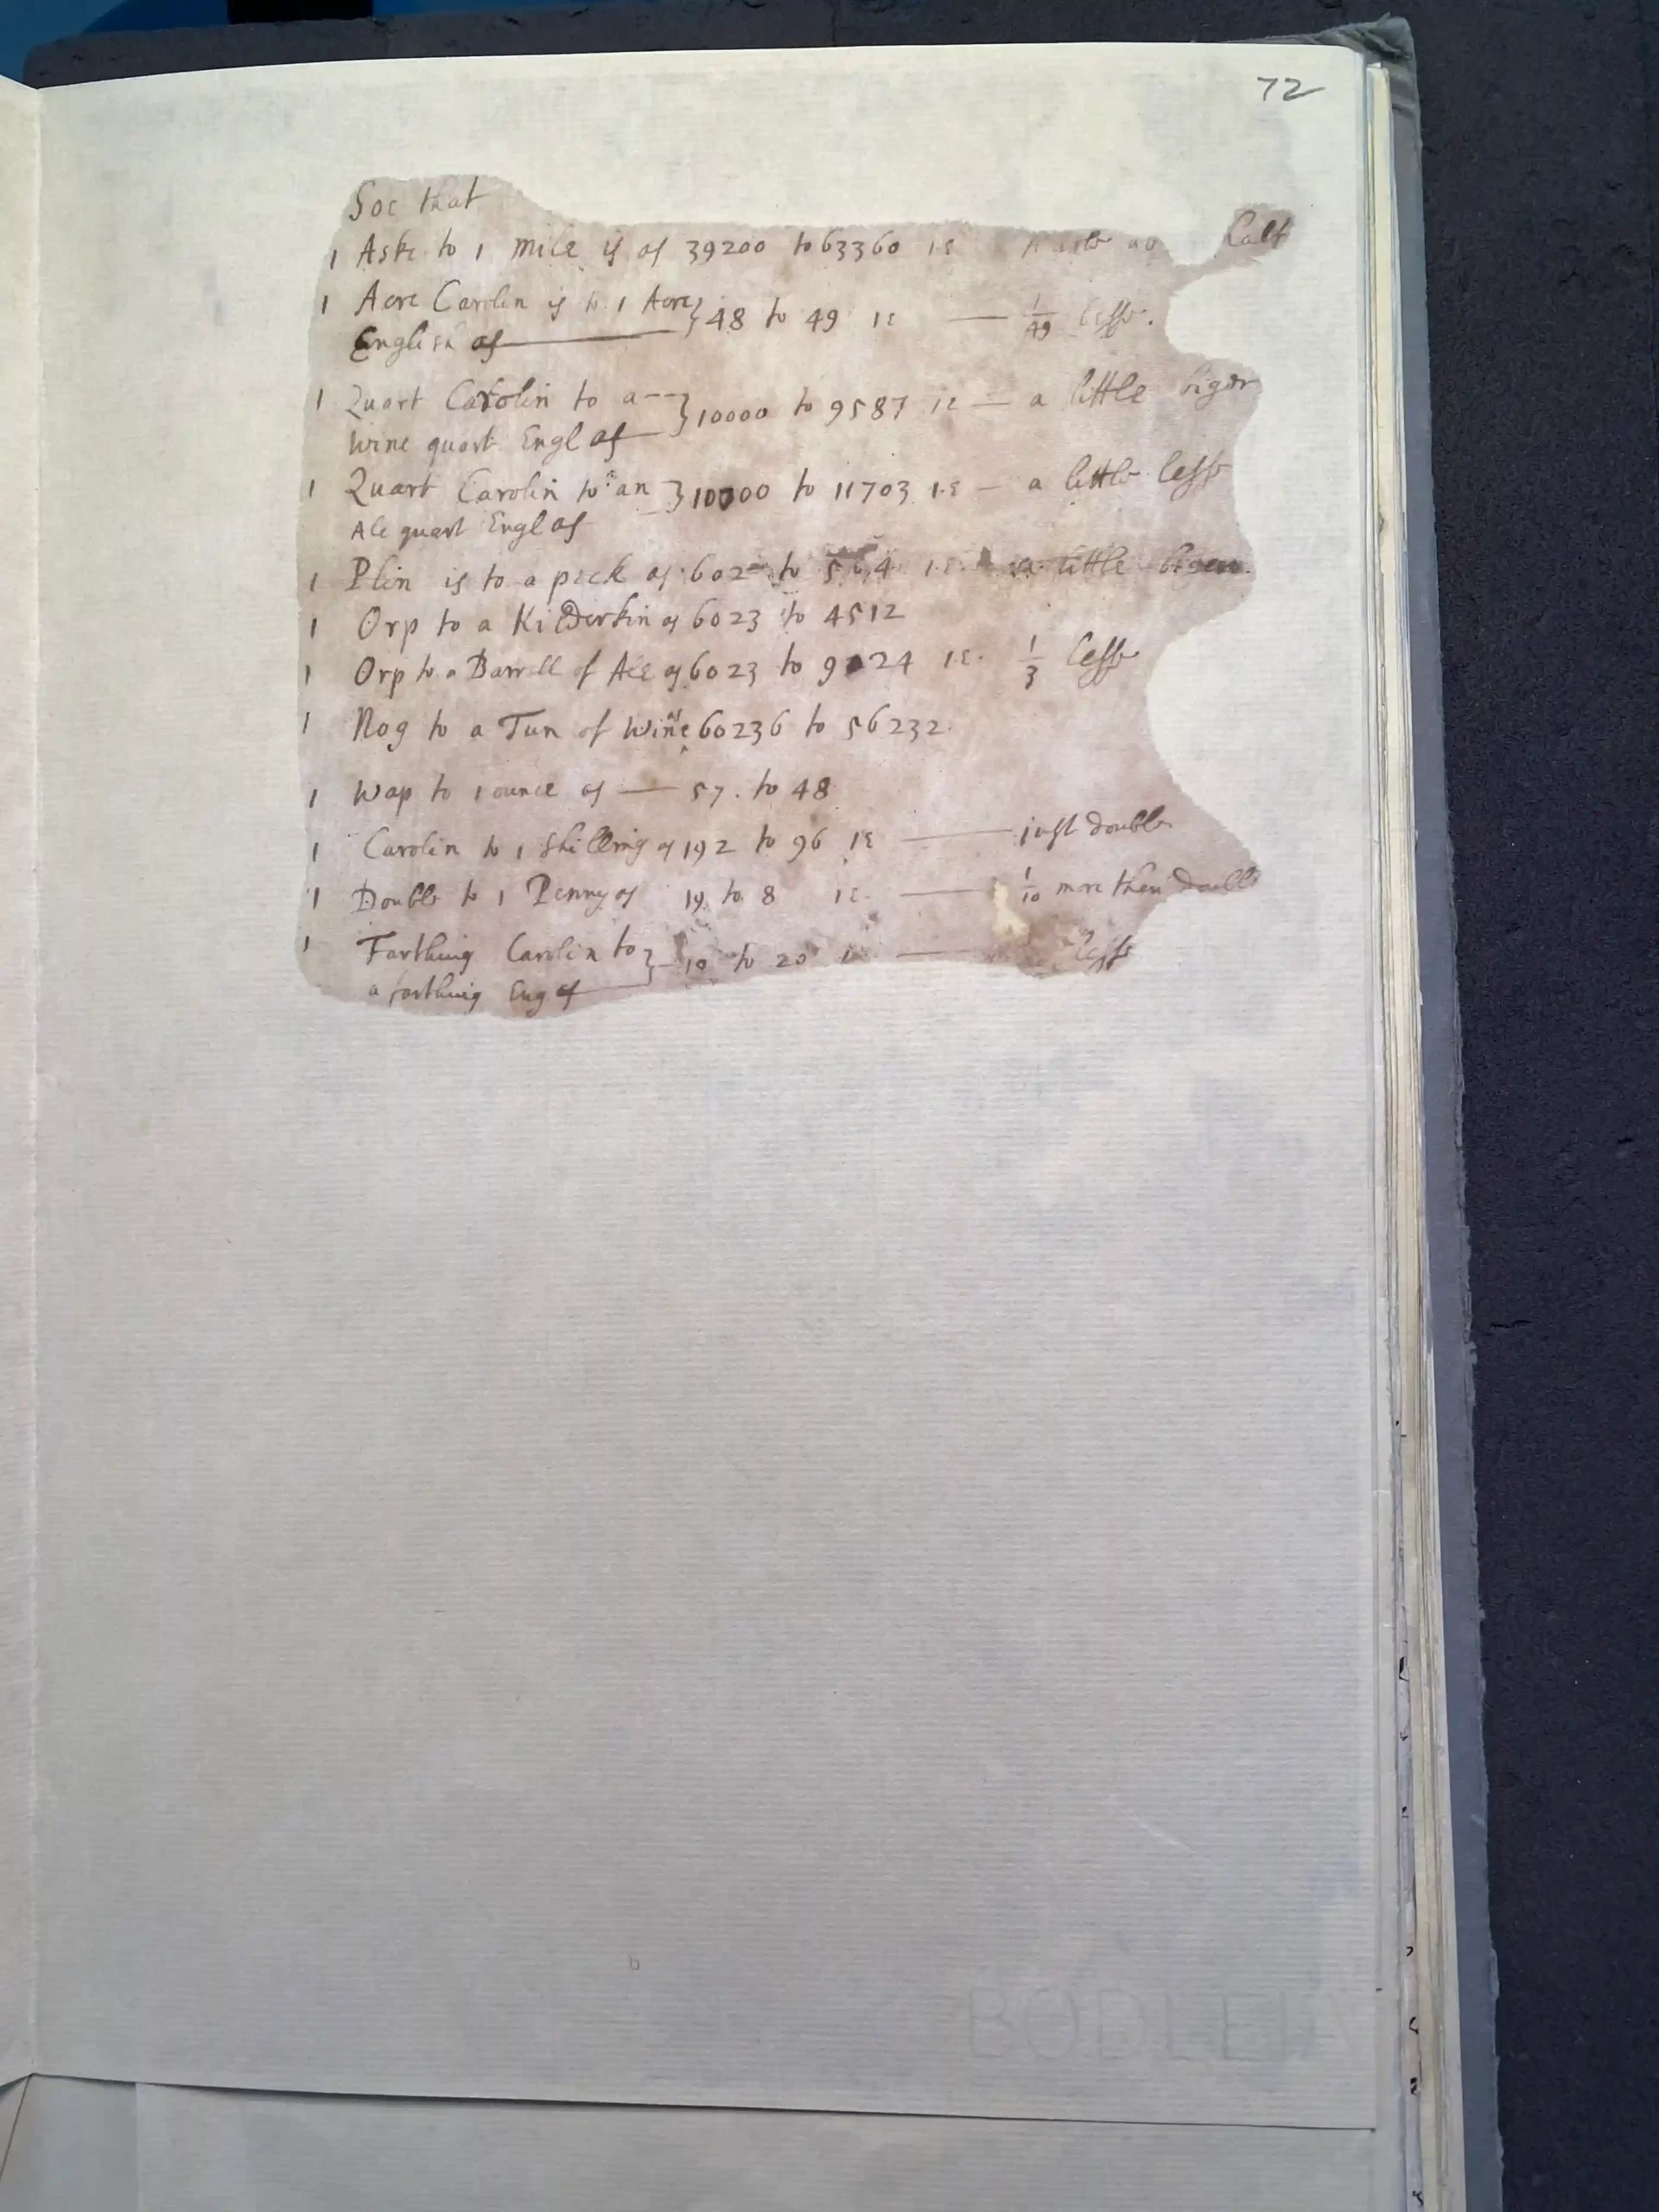 72
Soe that
1 Ask to 1 mile is as 39200 to 63360 i.e half
1 Acre Carolin is to 1 Acre } 48 to 49 i.e — 1/49 lesse.
English as
1 Quart Carolin to a -- } 10000 to 9587 i.e — a little biger
Wine quart Engl as
1 Quart Carolin to an } 10000 to 11703 i.e — a little lesse
Ale quart Engl as
1 Plin is to a peck as 602 to 564 i.e. a little biger.
1 Orp to a Kilderkin as 6023 to 4512
1 Orp to a Barrell of Ale as 6023 to 9024 i.e. 1/3 lesse
1 Nog to a Tun of Wine as 60236 to 56232.
1 Wap to 1 ounce as — 57. to 48
1 Carolin to 1 shilling as 192 to 96 i.e — just double
1 Double to 1 Penny as 19 to 8 i.e. — 1/10 more then double
1 Farthing Carolin to } 10 to 20 i.e — lesse
a farthing Eng as
BODLEIA